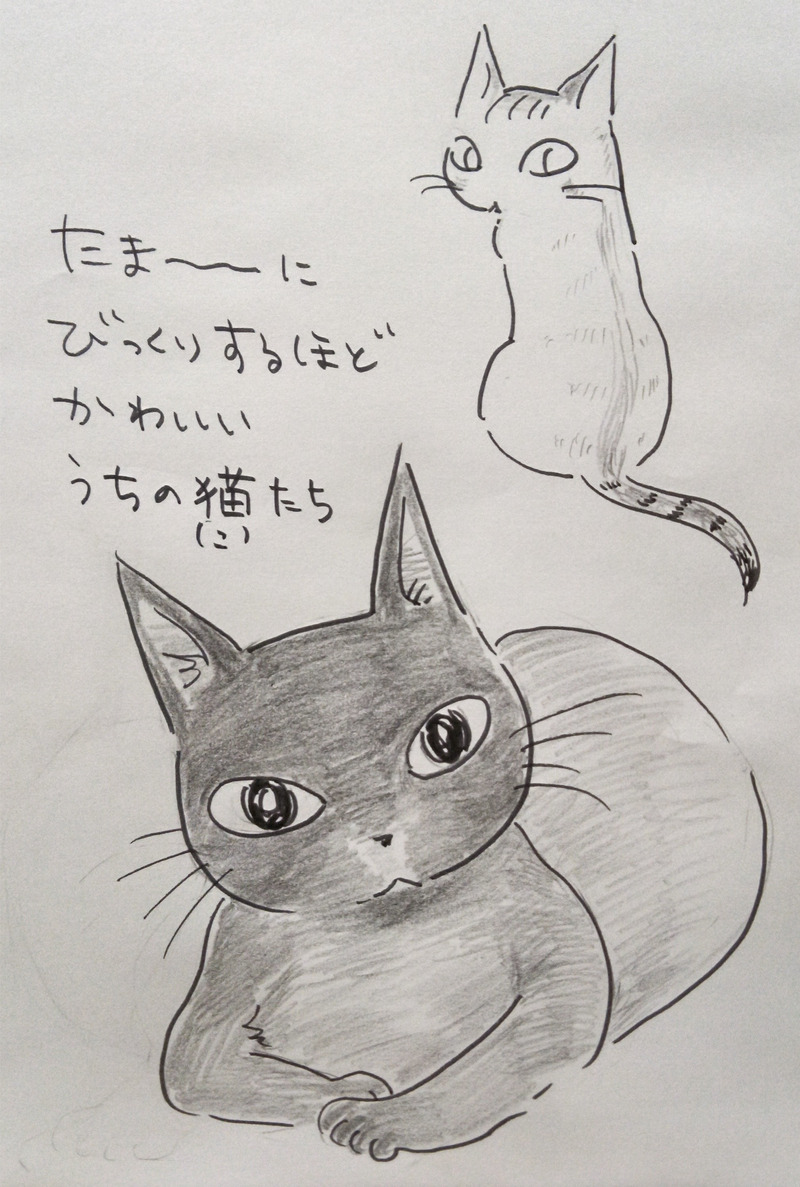 たま〜〜に
びっくりするほど
かわいいい
うちの猫たち
(こ)